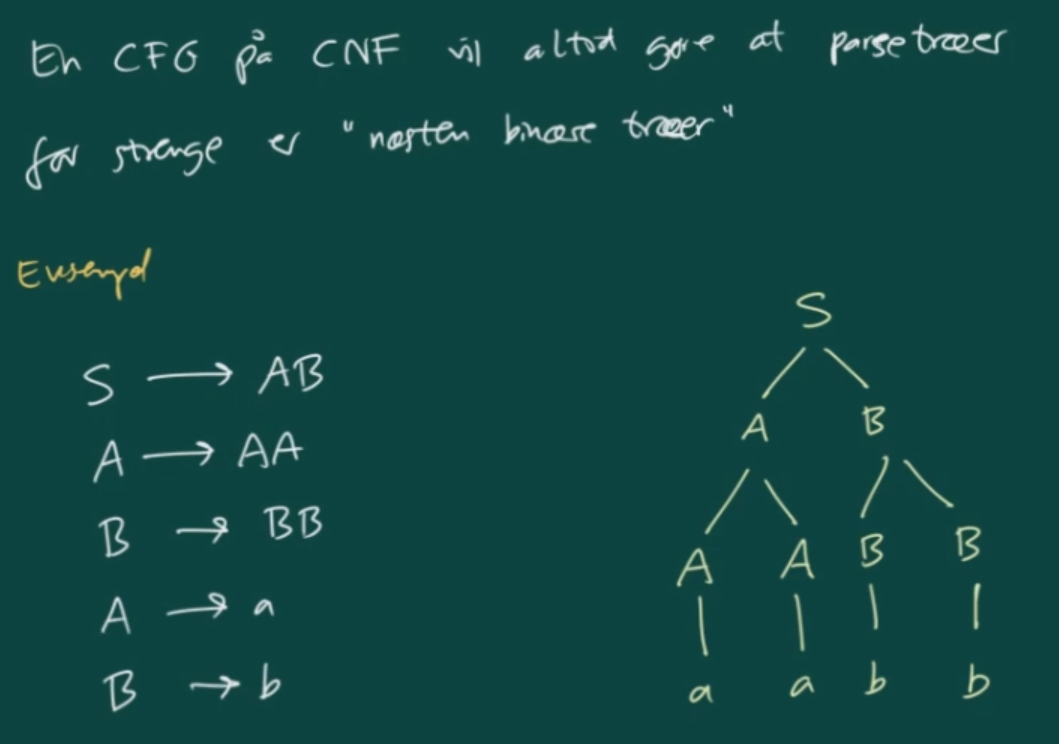 En CFG på CNF vil altid gøre at parsetræer
for strenge er "næsten binære træer"
Eksempel
S → AB
A → AA
B → BB
A → a
B → b
S
A B
A A B B
a a b b